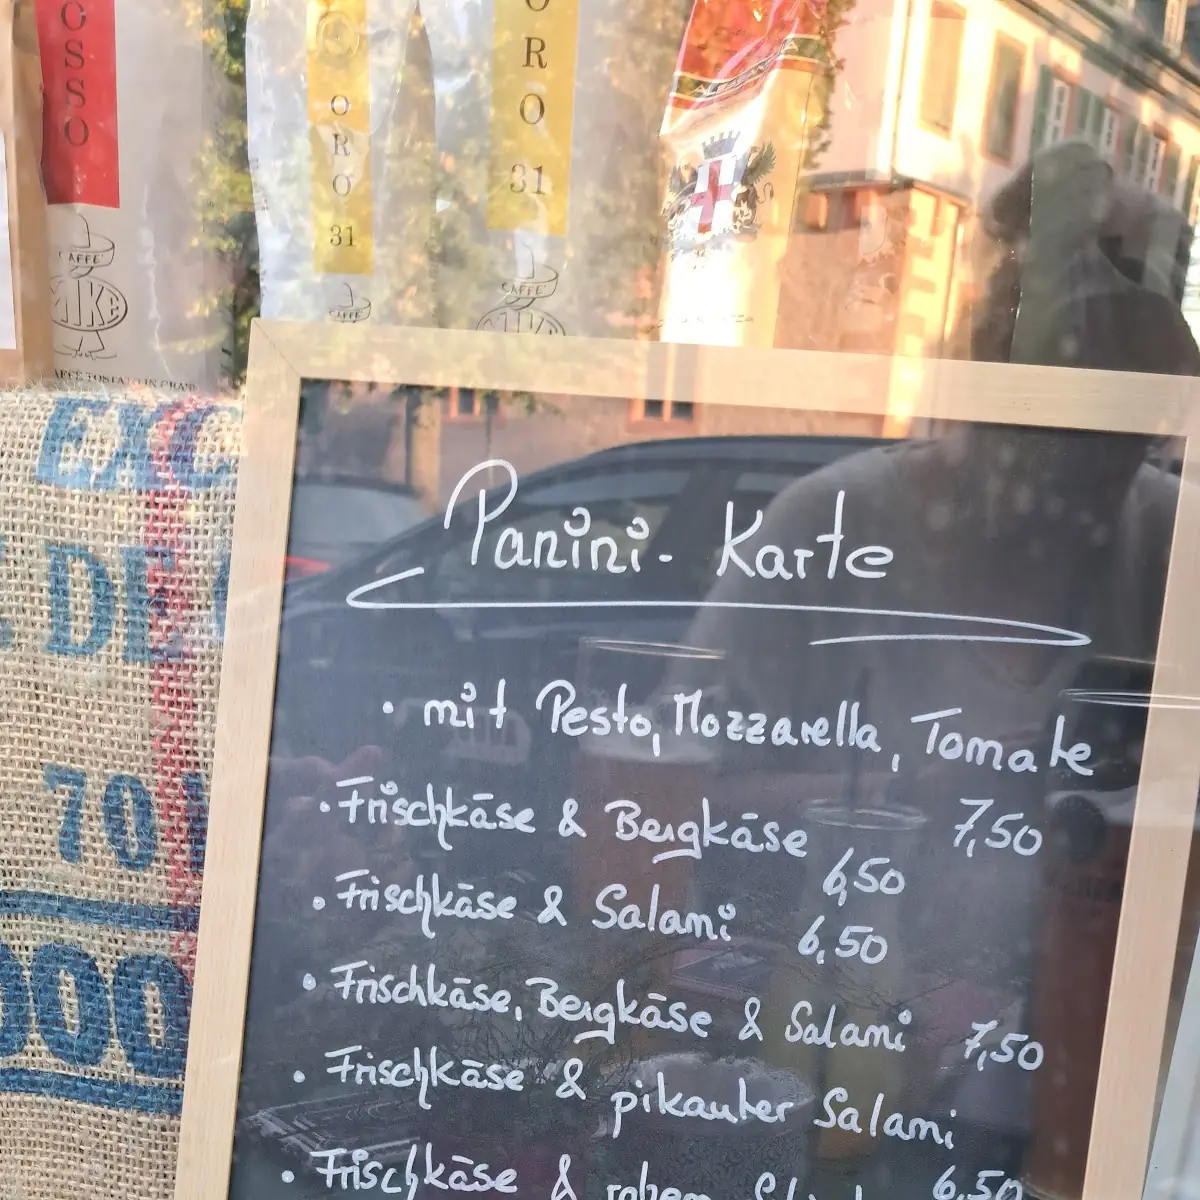 OSSO
ORO
31
ORO
31
CAFFE'
MIKE
CAFFE'
CAFFE'
MIKE
EXC
DE
70
000
Panini-Karte
• mit Pesto, Mozzarella, Tomate
7,50
• Frischkäse & Bergkäse
6,50
• Frischkäse & Salami 6,50
• Frischkäse, Bergkäse & Salami 7,50
• Frischkäse & pikanter Salami
6,50
• Frischkäse & rohem